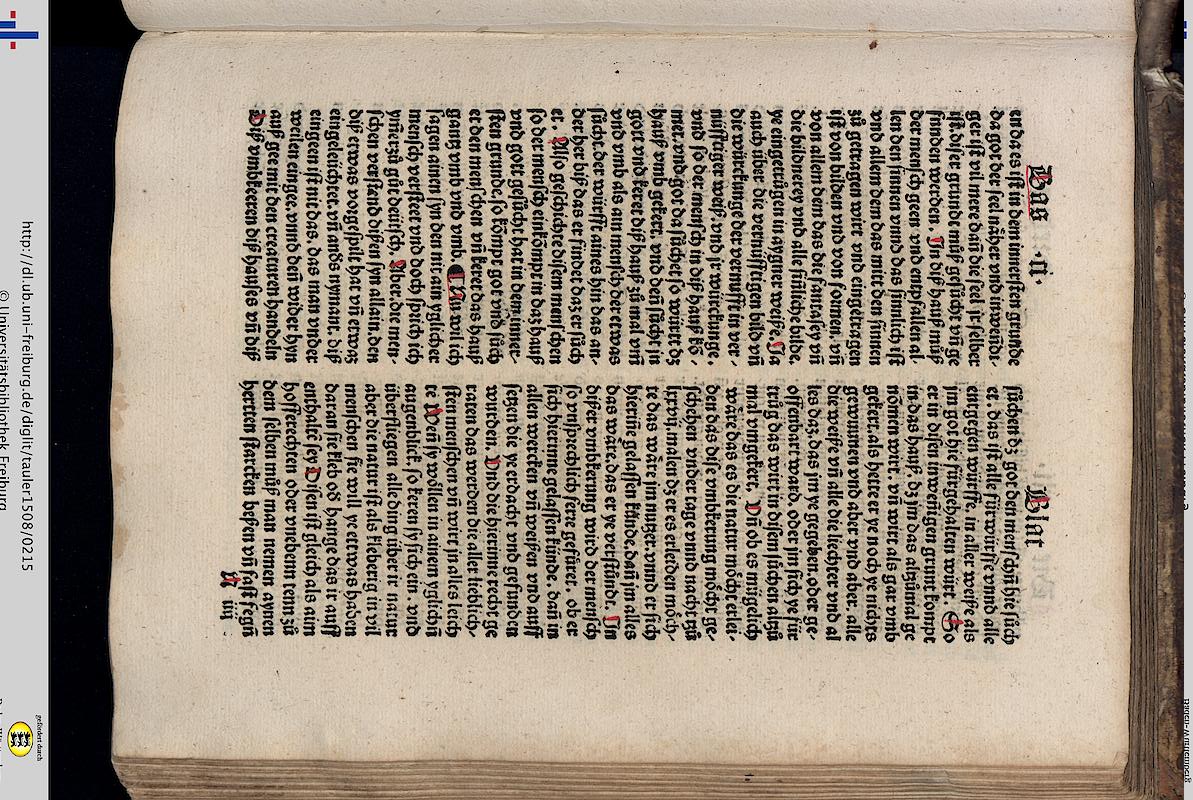 Das .ci. Blat
en da es ist in dem innersten grunde
da got der sel näher vnd inwendi-
ger ist vil mere dañ die seel ir selber
ist. diser grund můß gesůcht vñ ge
funden werden. In diß hauß můß
der mensch geen vnd entpfallen al
len den sinnen vnnd das sinnlich ist
vnd allem dem das mit den sinnen
zů getragen wirt vnd eingetragen
ist von bilden vnd von formen. vñ
von allem dem das die fantasey vñ
die bildnerey vnd alle sinliche bilde.
ye eingetrůgen in aygner weise. Ja
auch über die vernünfftigen bild vñ
die würckunge der vernufft in ver-
nüfftiger weiß, vnd jr würckunge.
vnd so der mensch in diß hauß kō-
met. vnd got da sůchet so würt dz
hauß vmb gekert, vnd deñ sůcht jn
got vnd keret diß hauß zů mal vm̄
vnd vmb als ain mensch der etwas
sůcht. der würfft aines hin das an-
der her biß das er findet daz er sůch
et. Also geschicht disem menschen
so der mensch einkompt in daz hauß
vnd got gesůcht hat in dem inner-
sten grunde. so kompt got vnd sůch
et den menschen vñ keret das hauß
gantz vmb vnd vmb. Nu wil ich
sagen ainen syn den nit ain yglicher
mensch versteet vnd doch sprich ich
ym̄erzů gůt deütsch. Aber die men-
schen verstand disen syn allain, den
diß etwas vorgespilt hat vñ etwaz
eingeleüchtet. vñ anders nymant. diß
eingeen ist nit das, das man vnder
weilen eingee. vnnd deñ wider hyn
auß gee mit den creaturen handeln
Diß vmbkeeren diß hauses vñ diß
sůchen dz got den menschñ hie sůch
et. das ist alle fürwürffe vnnd alle
entgegen würffe, in aller weise als
jm got hie fürgehalten würt. So
er in disen inwendigen grunt kompt
in das hauß, dz jm das alzůmal ge
nōmen wirt. vñ wirt als gar vmb
gekert, als hette er ye noch ye nichts
gewunnen vnd aber vnd aber, alle
die weiß vñ alle die liechter vnd al
les daz, das jm ye gegeben. oder ge-
offenbart ward. oder jm sich ye für
trůg das wirt in disem sůchen alzů
mal vmgekert. Vñ ob es müglich
wäre das es die natur möcht erlei-
den das dise vmbkerung möcht ge-
schehen vnder tage vnnd nacht zů
lxxvij. malen dz er es erleiden möch-
te das wäre jm nutzer. vnnd er sich
hierin̄e gelassen künde. dañ jm alles
das wäre. das er ye verstünde. In
diser vmbkerung wird der mensch
so vnsprechlich ferre gefüret. ob er
sich hierinne gelassen künde, dañ in
allen wercken vñ weysen vnd auff
setzen die ye erdacht vnd gefunden
wurden. Vnd die hierinne recht ge
raten das werden die aller lieblich-
sten menschen vñ wirt jn alles leich
te Weñ sy wöllen in ainem yglichñ
augenblick so keren sy sich ein. vnd
überfliegen alle ding über ir natur
aber die natur ist als kleberig in vil
menschen sie wil ye etwas haben
daran sie kleb od hange das ir auff
enthalte sey Disen ist gleich als aim
hofferechten oder vnebnem tenn zů
dem selben můß man nemen aynen
herten starcken besen vñ fast fegñ
N iiij
http://dl.ub.uni-freiburg.de/diglit/tauler1508/0215
© Universitätsbibliothek Freiburg
gefördert durch